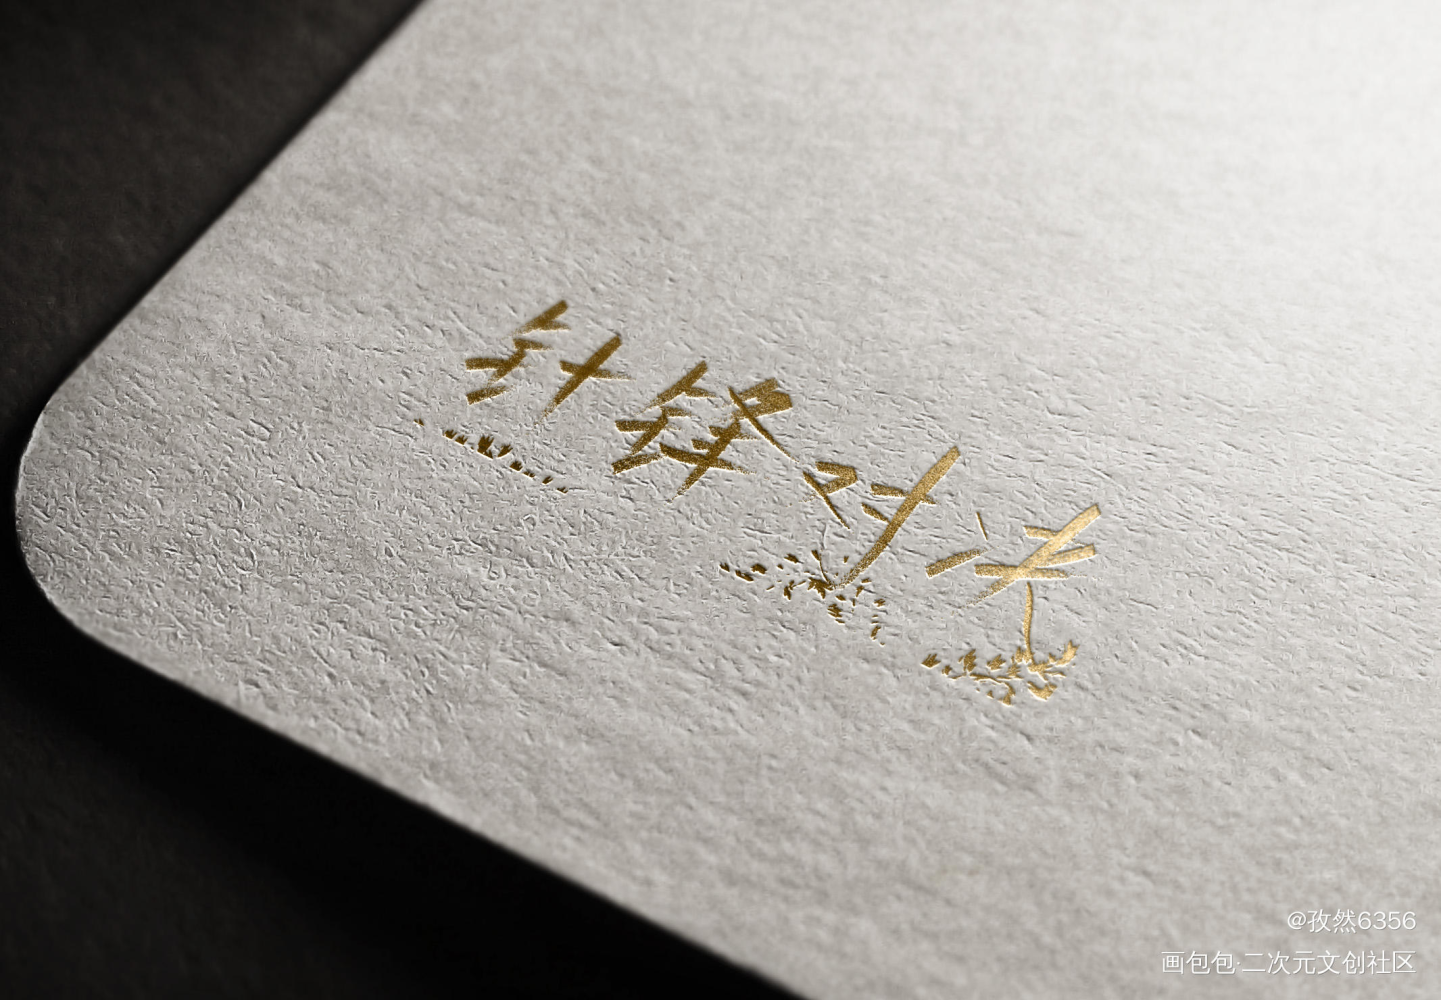 针锋对决
@孜然6356
画包包·二次元文创社区